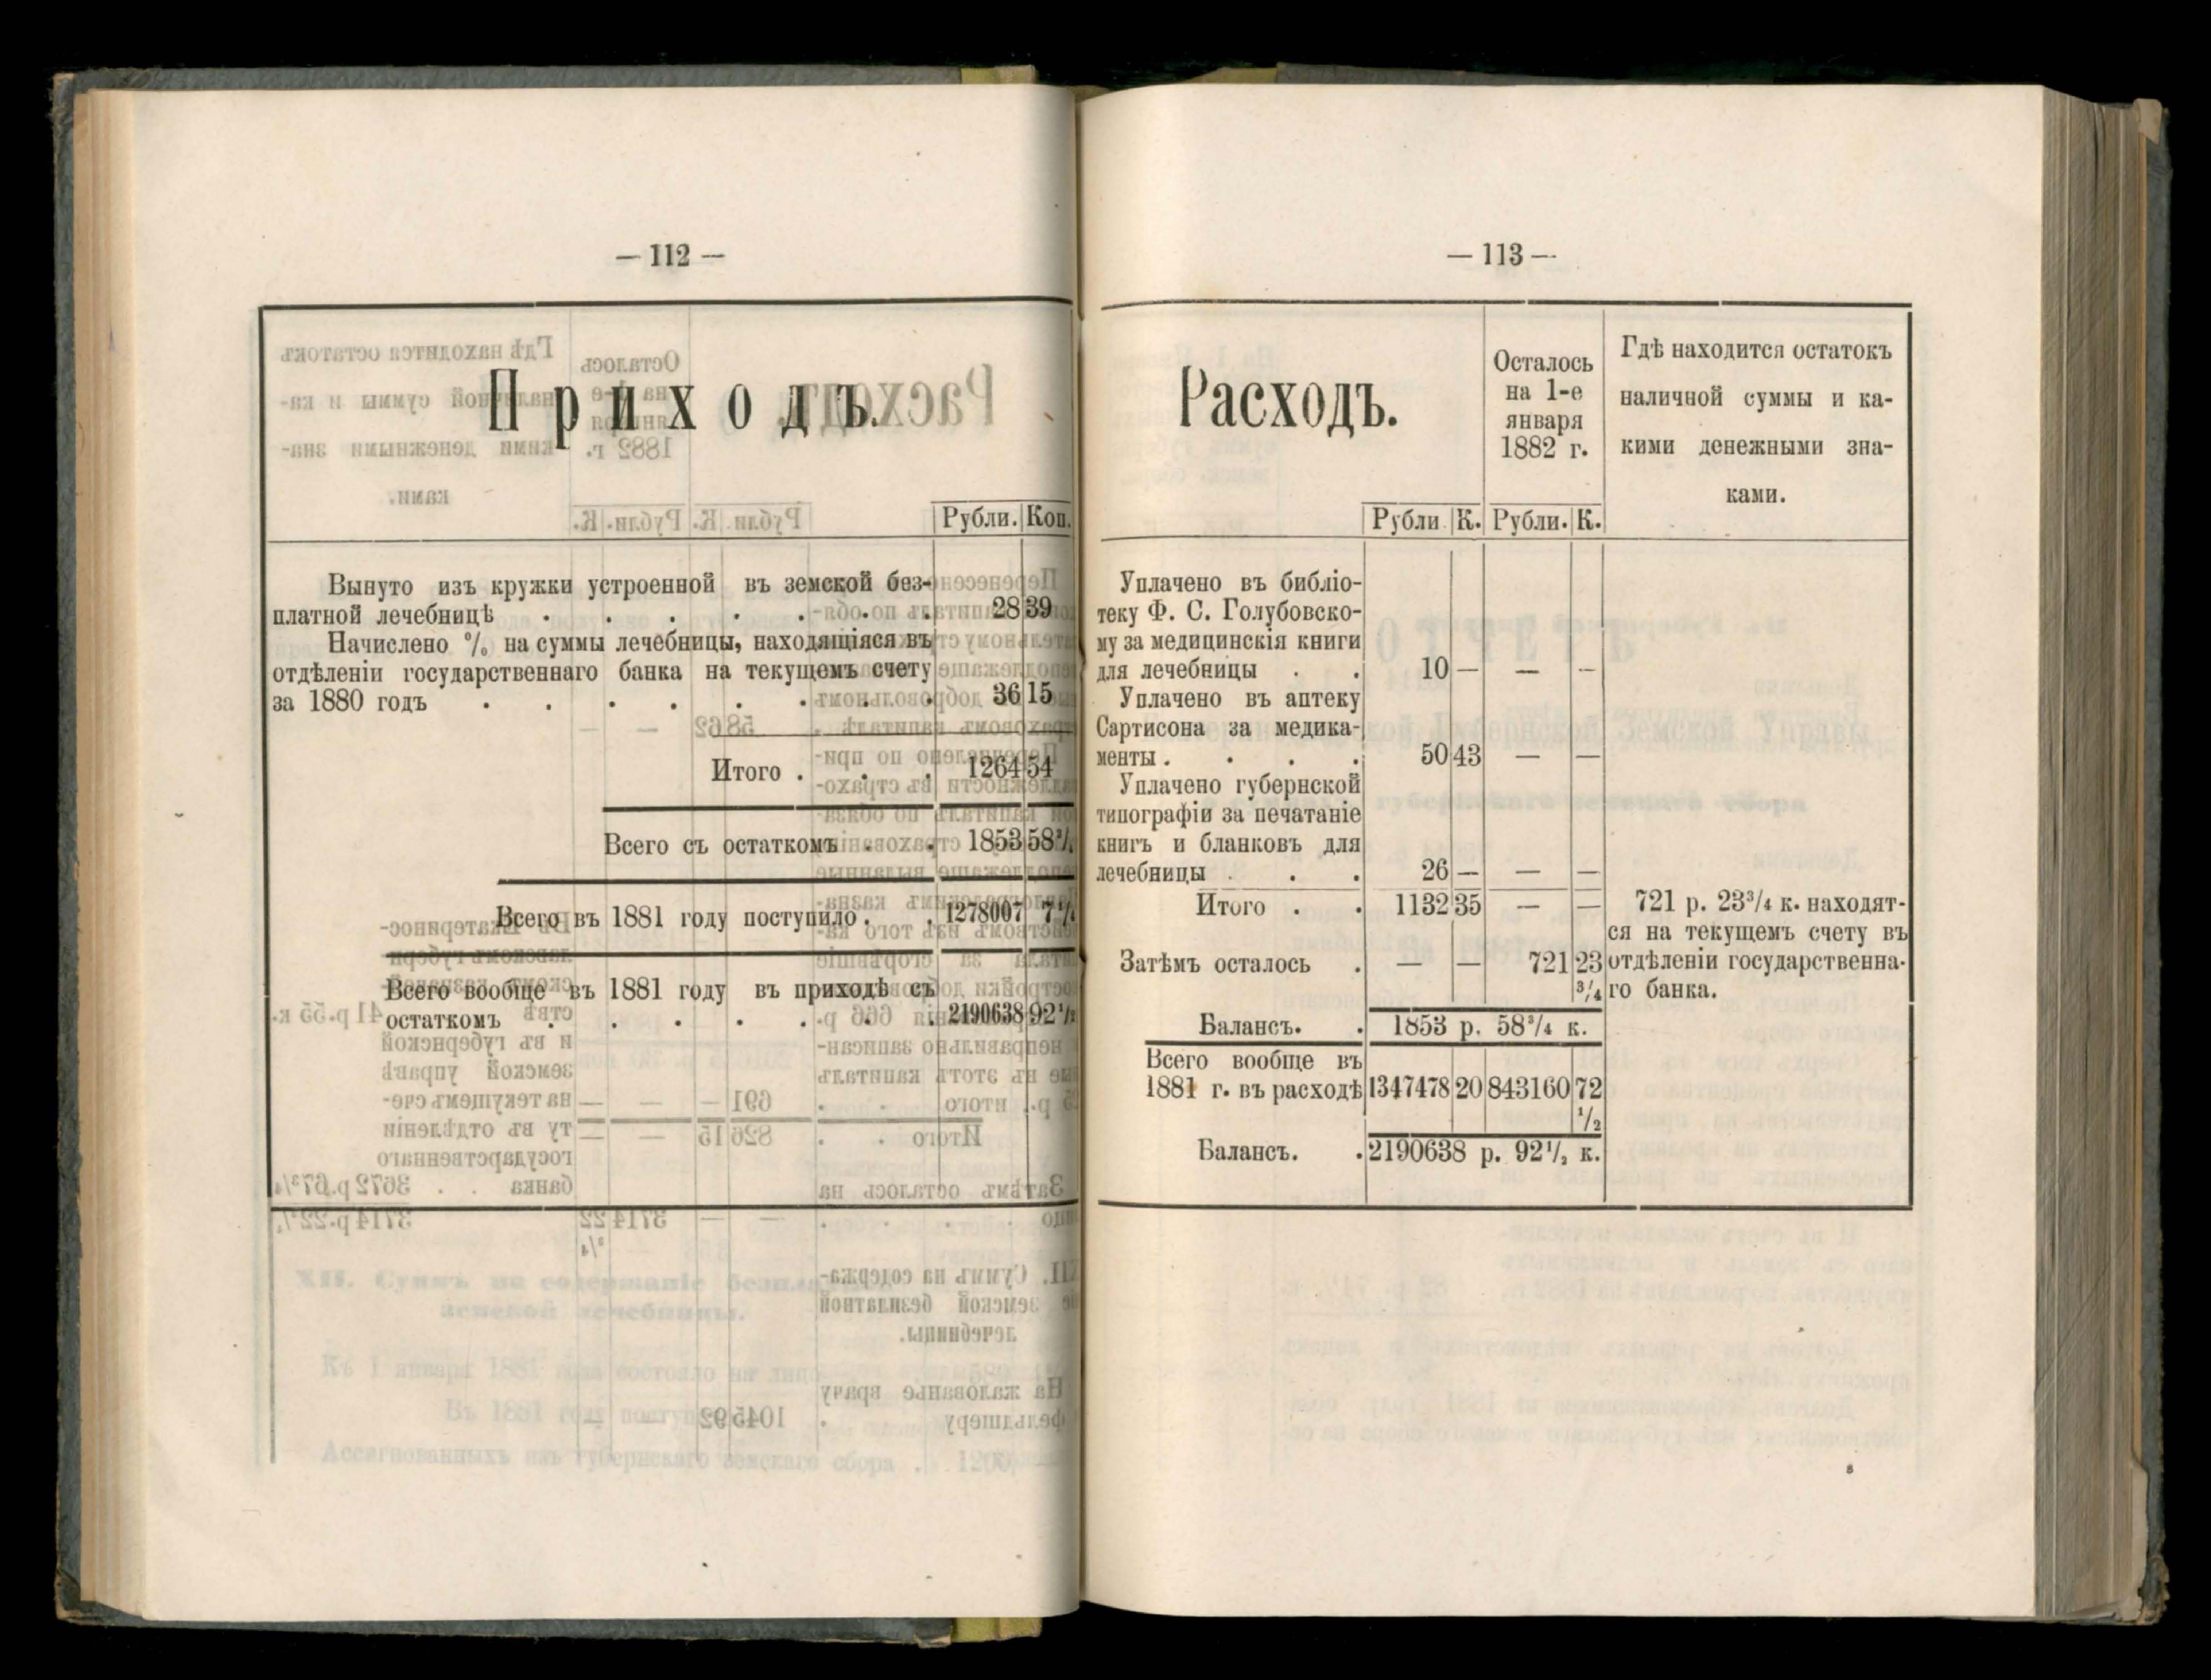 — 112 —
Приходъ.
Рубли. Коп.
Вынуто изъ кружки устроенной въ земской без-
платной лечебницѣ . . . . . . . 28 39
Начислено % на суммы лечебницы, находящіяся въ
отдѣленіи государственнаго банка на текущемъ счету
за 1880 годъ . . . . . . . . 36 15
Итого . . . 1264 54
Всего съ остаткомъ . . 1853 58³/₄
Всего въ 1881 году поступило . . 1278007 7
Всего вообще въ 1881 году въ приходѣ съ
остаткомъ . . . . . . . 2190638 92¹/₂
— 113 —
Расходъ.
Осталось
на 1-е
января
1882 г.
Гдѣ находится остатокъ
наличной суммы и ка-
кими денежными зна-
ками.
Рубли. К. Рубли. К.
Уплачено въ библіо-
теку Ф. С. Голубовско-
му за медицинскія книги
для лечебницы . . 10 — — —
Уплачено въ аптеку
Сартисона за медика-
менты . . . . 50 43 — —
Уплачено губернской
типографіи за печатаніе
книгъ и бланковъ для
лечебницы . . . 26 — — —
Итого . . 1132 35 — —
Затѣмъ осталось . — — 721 23
³/₄
721 р. 23³/₄ к. находят-
ся на текущемъ счету въ
отдѣленіи государственна-
го банка.
Балансъ. . 1853 р. 58³/₄ к.
Всего вообще въ
1881 г. въ расходѣ 1347478 20 843160 72
¹/₂
Балансъ. . 2190638 р. 92¹/₂ к.